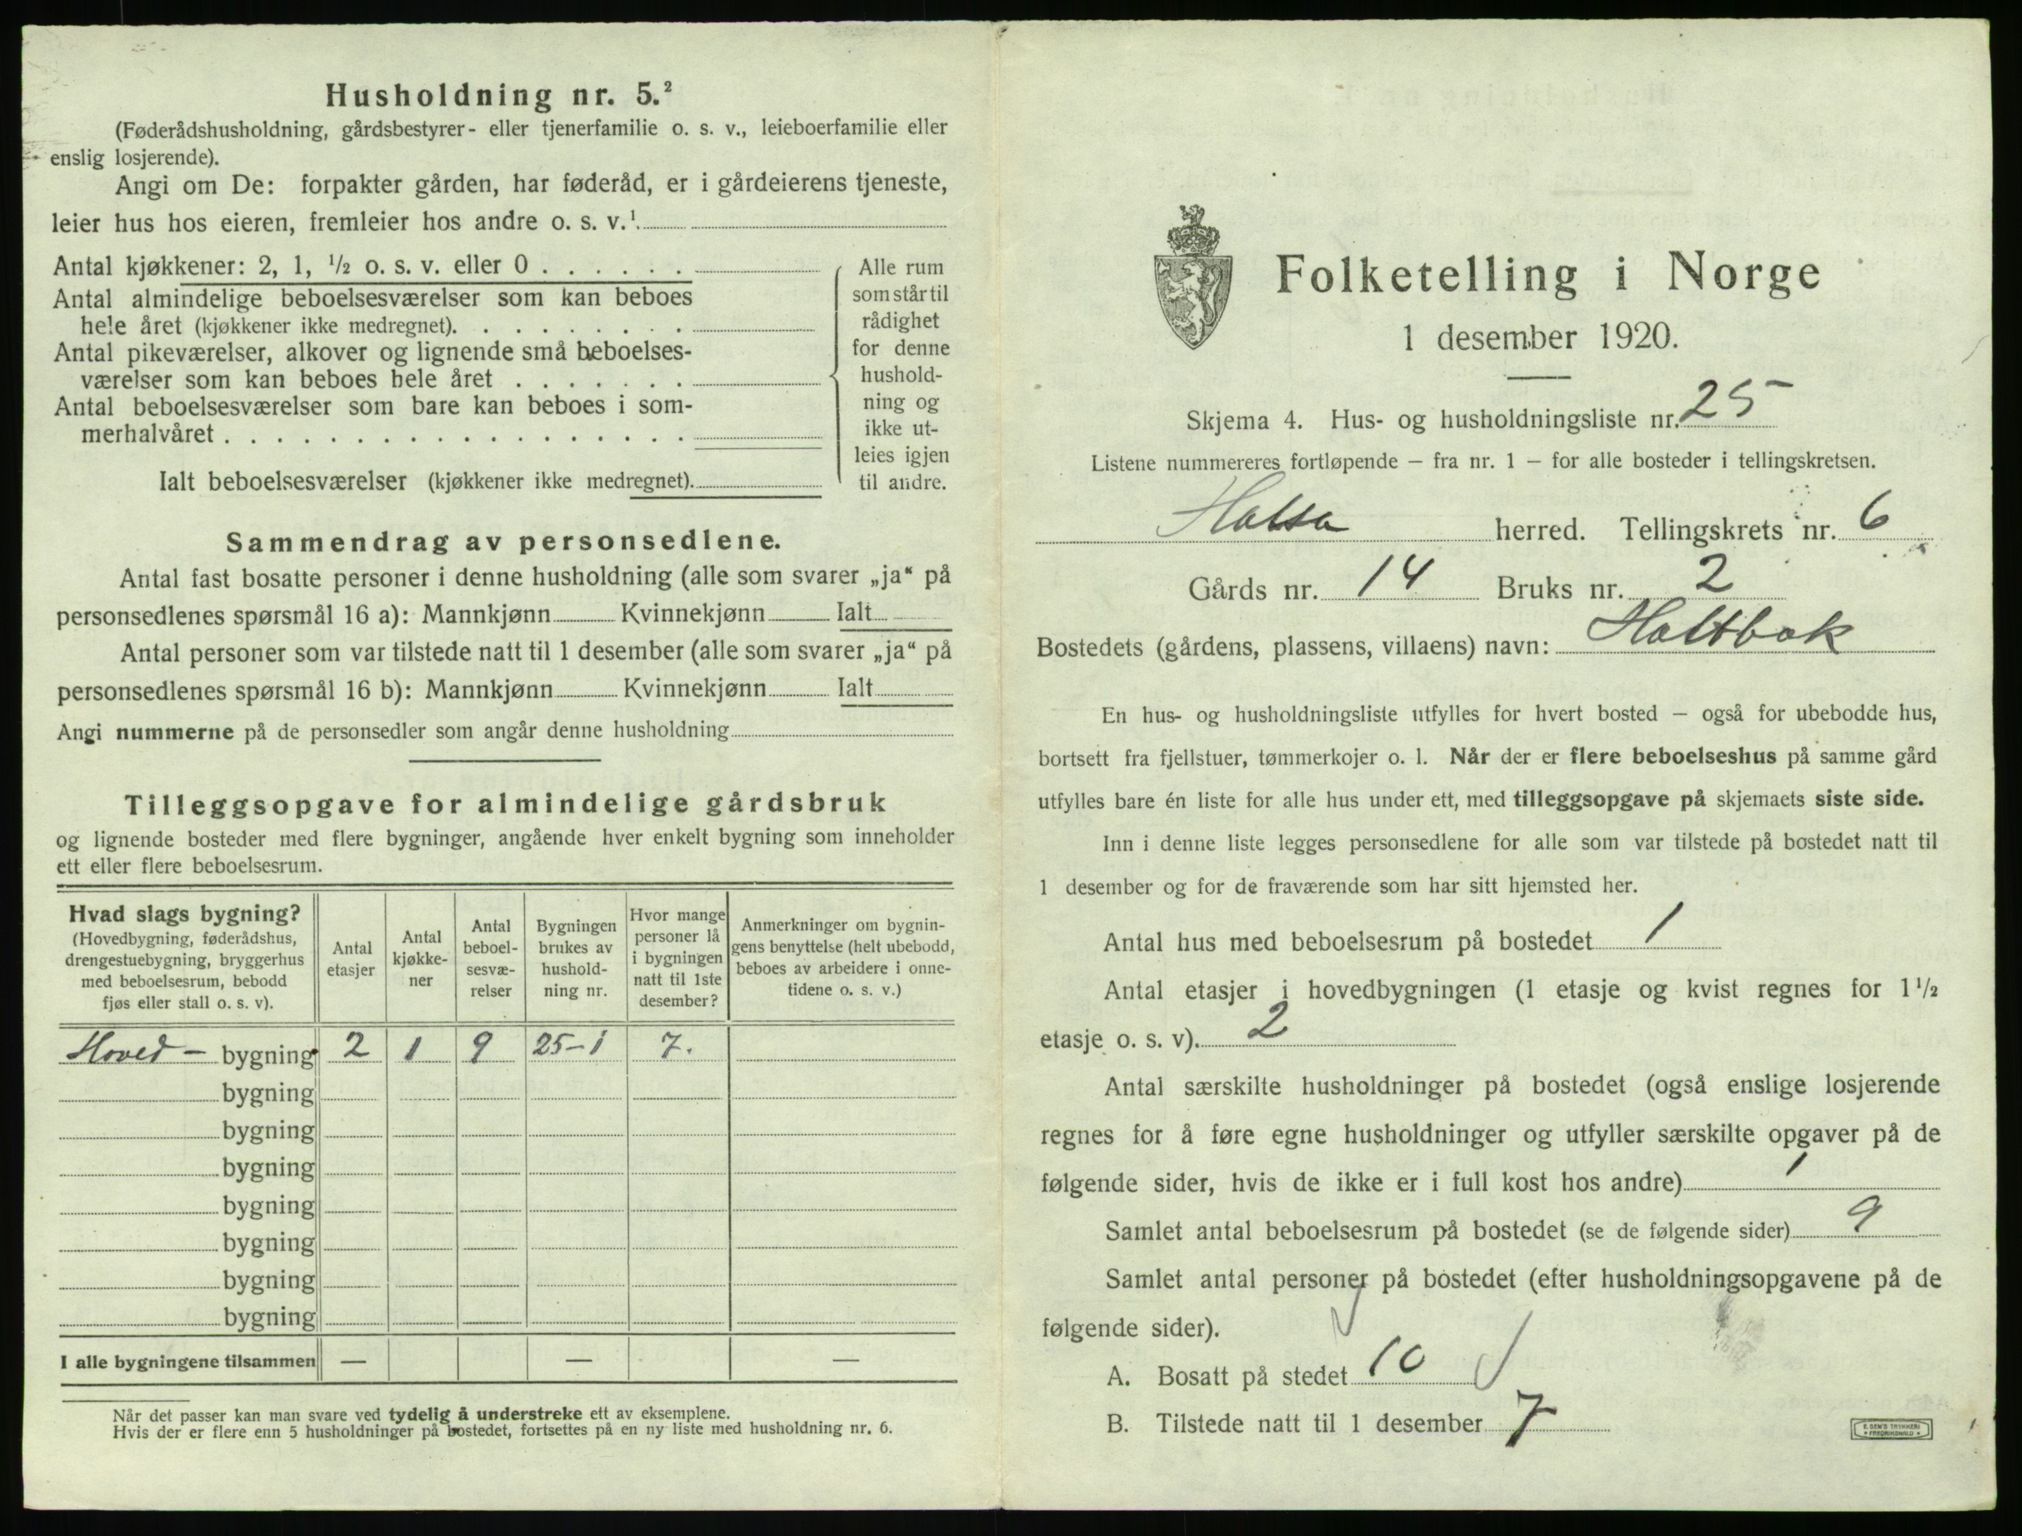 Husholdning nr. 5.²
(Føderådshusholdning, gårdsbestyrer- eller tjenerfamilie o. s. v., leieboerfamilie eller
enslig losjerende).
Angi om De: forpakter gården, har føderåd, er i gårdeierens tjeneste,
leier hus hos eieren, fremleier hos andre o. s. v.¹
Antal kjøkkener: 2, 1, ½ o. s. v. eller 0 . . . . . .
Antal almindelige beboelsesværelser som kan beboes
hele året (kjøkkener ikke medregnet). . . . . . . . .
Antal pikeværelser, alkover og lignende små beboelses-
værelser som kan beboes hele året . . . . . . .
Antal beboelsesværelser som bare kan beboes i som-
merhalvåret . . . . . . . . . . . . . . . . . .
Ialt beboelsesværelser (kjøkkener ikke medregnet).
Alle rum
som står til
rådighet
for denne
hushold-
ning og
ikke ut-
leies igjen
til andre.
Sammendrag av personsedlene.
Antal fast bosatte personer i denne husholdning (alle som svarer „ja“ på
personsedlenes spørsmål 16 a): Mannkjønn Kvinnekjønn Ialt
Antal personer som var tilstede natt til 1 desember (alle som svarer „ja“ på
personsedlenes spørsmål 16 b): Mannkjønn Kvinnekjønn Ialt
Angi nummerne på de personsedler som angår denne husholdning
Tilleggsopgave for almindelige gårdsbruk
og lignende bosteder med flere bygninger, angående hver enkelt bygning som inneholder
ett eller flere beboelsesrum.
Hvad slags bygning?
(Hovedbygning, føderådshus,
drengestuebygning, bryggerhus
med beboelsesrum, bebodd
fjøs eller stall o. s. v).
Antal
etasjer
Antal
kjøkke-
ner
Antal
beboel-
sesvæ-
relser
Bygningen
brukes av
hushold-
ning nr.
Hvor mange
personer lå
i bygningen
natt til 1ste
desember?
Anmerkninger om bygnin-
gens benyttelse (helt ubebodd,
beboes av arbeidere i onne-
tidene o. s. v.)
Hoved- bygning 2 1 9 25-1 7.
bygning
bygning
bygning
bygning
bygning
bygning
bygning
I alle bygningene tilsammen — — —
Når det passer kan man svare ved tydelig å understreke ett av eksemplene.
Hvis der er flere enn 5 husholdninger på bostedet, fortsettes på en ny liste med husholdning nr. 6.
Folketelling i Norge
1 desember 1920.
Skjema 4. Hus- og husholdningsliste nr. 25
Listene nummereres fortløpende – fra nr. 1 – for alle bosteder i tellingskretsen.
Halsa herred. Tellingskrets nr. 6
Gårds nr. 14 Bruks nr. 2
Bostedets (gårdens, plassens, villaens) navn: Holtbak
En hus- og husholdningsliste utfylles for hvert bosted – også for ubebodde hus,
bortsett fra fjellstuer, tømmerkojer o. l. Når der er flere beboelseshus på samme gård
utfylles bare én liste for alle hus under ett, med tilleggsopgave på skjemaets siste side.
Inn i denne liste legges personsedlene for alle som var tilstede på bostedet natt til
1 desember og for de fraværende som har sitt hjemsted her.
Antal hus med beboelsesrum på bostedet 1
Antal etasjer i hovedbygningen (1 etasje og kvist regnes for 1½
etasje o. s. v). 2
Antal særskilte husholdninger på bostedet (også enslige losjerende
regnes for å føre egne husholdninger og utfyller særskilte opgaver på de
følgende sider, hvis de ikke er i full kost hos andre) 1
Samlet antal beboelsesrum på bostedet (se de følgende sider) 9
Samlet antal personer på bostedet (efter husholdningsopgavene på de
følgende sider).
A. Bosatt på stedet 10
B. Tilstede natt til 1 desember 7